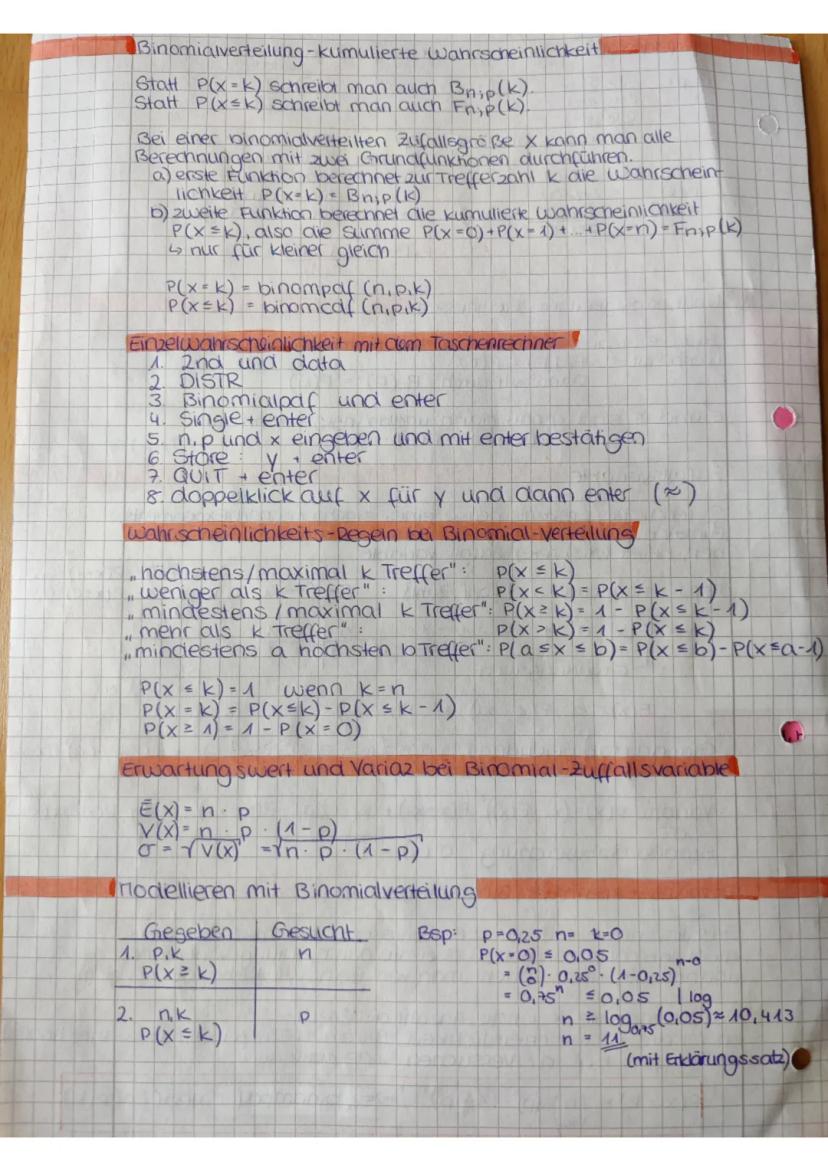 Binomialverteilung-kumulierte Wahrscheinlichkeit
Statt P(X=k) schreibt man auch Bn;p(k).
Statt P(X≤k) schreibt man auch Fn;p(k).
Bei einer binomialverteilten Zufallsgröße X kann man alle
Berechnungen mit zwei Grundfunktionen durchführen.
a) erste Funktion berechnet zur Trefferzahl k die Wahrschein-
lichkeit P(X=k) = Bn;p(k)
b) zweite Funktion berechnet die kumulierte Wahrscheinlichkeit
P(X≤k), also die Summe P(X=0)+P(X=1)+...+P(X=n)=Fn;p(k)
↳ nur für kleiner gleich
P(X=k) = binompdf (n,p,k)
P(X≤k) = binomcdf (n,p,k)
Einzelwahrscheinlichkeit mit dem Taschenrechner
1. 2nd und data
2. DISTR
3. Binomialpdf und enter
4. Single + enter
5. n,p und x eingeben und mit enter bestätigen
6. Store: y + enter
7. QUIT + enter
8. doppelklick auf x für y und dann enter (≈)
Wahrscheinlichkeits-Regeln bei Binomial-Verteilung
„höchstens/maximal k Treffer": P(X≤k)
„weniger als k Treffer": P(X<k) = P(X≤k-1)
„mindestens/maximal k Treffer": P(X≥k) = 1 - P(X≤k-1)
„mehr als k Treffer": P(X>k) = 1 - P(X≤k)
„mindestens a höchsten b Treffer": P(a≤X≤b) = P(X≤b)-P(X≤a-1)
P(X≤k) = 1 wenn k=n
P(X=k) = P(X≤k)-P(X≤k-1)
P(X≥1) = 1 - P(X=0)
Erwartungswert und Variaz bei Binomial-Zuffallsvariable
E(X) = n · p
V(X) = n · p · (1-p)
σ = √V(X) = √n · p · (1-p)
Modellieren mit Binomialverteilung
Gegeben Gesucht
1. p,k n
P(X≥k)
2. n,k p
P(X≤k)
Bsp: p=0,25 n= k=0
P(X=0) ≤ 0,05
= (n 0) · 0,25⁰ · (1-0,25)ⁿ⁻⁰
= 0,75ⁿ ≤ 0,05 | log
n ≥ log₀,₇₅ (0,05) ≈ 10,413
n = 11
(mit Erklärungssatz)